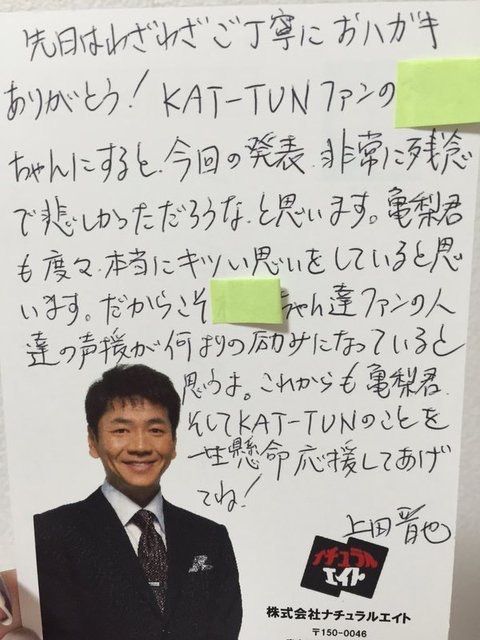 先日はわざわざご丁寧におハガキ
ありがとう! KAT-TUNファンの
ちゃんにすると、今回の発表、非常に残念
で悲しかっただろうな、と思います。亀梨君
も度々、本当にキツい思いをしていると思
います。だからこそ ちゃん達ファンの人
達の声援が何よりの励みになっていると
思うよ。これからも亀梨君、
そしてKAT-TUNのことを
一生懸命応援してあげ
てね!
上田晋也
ナチュラル
エイト
株式会社ナチュラルエイト
〒150-0046